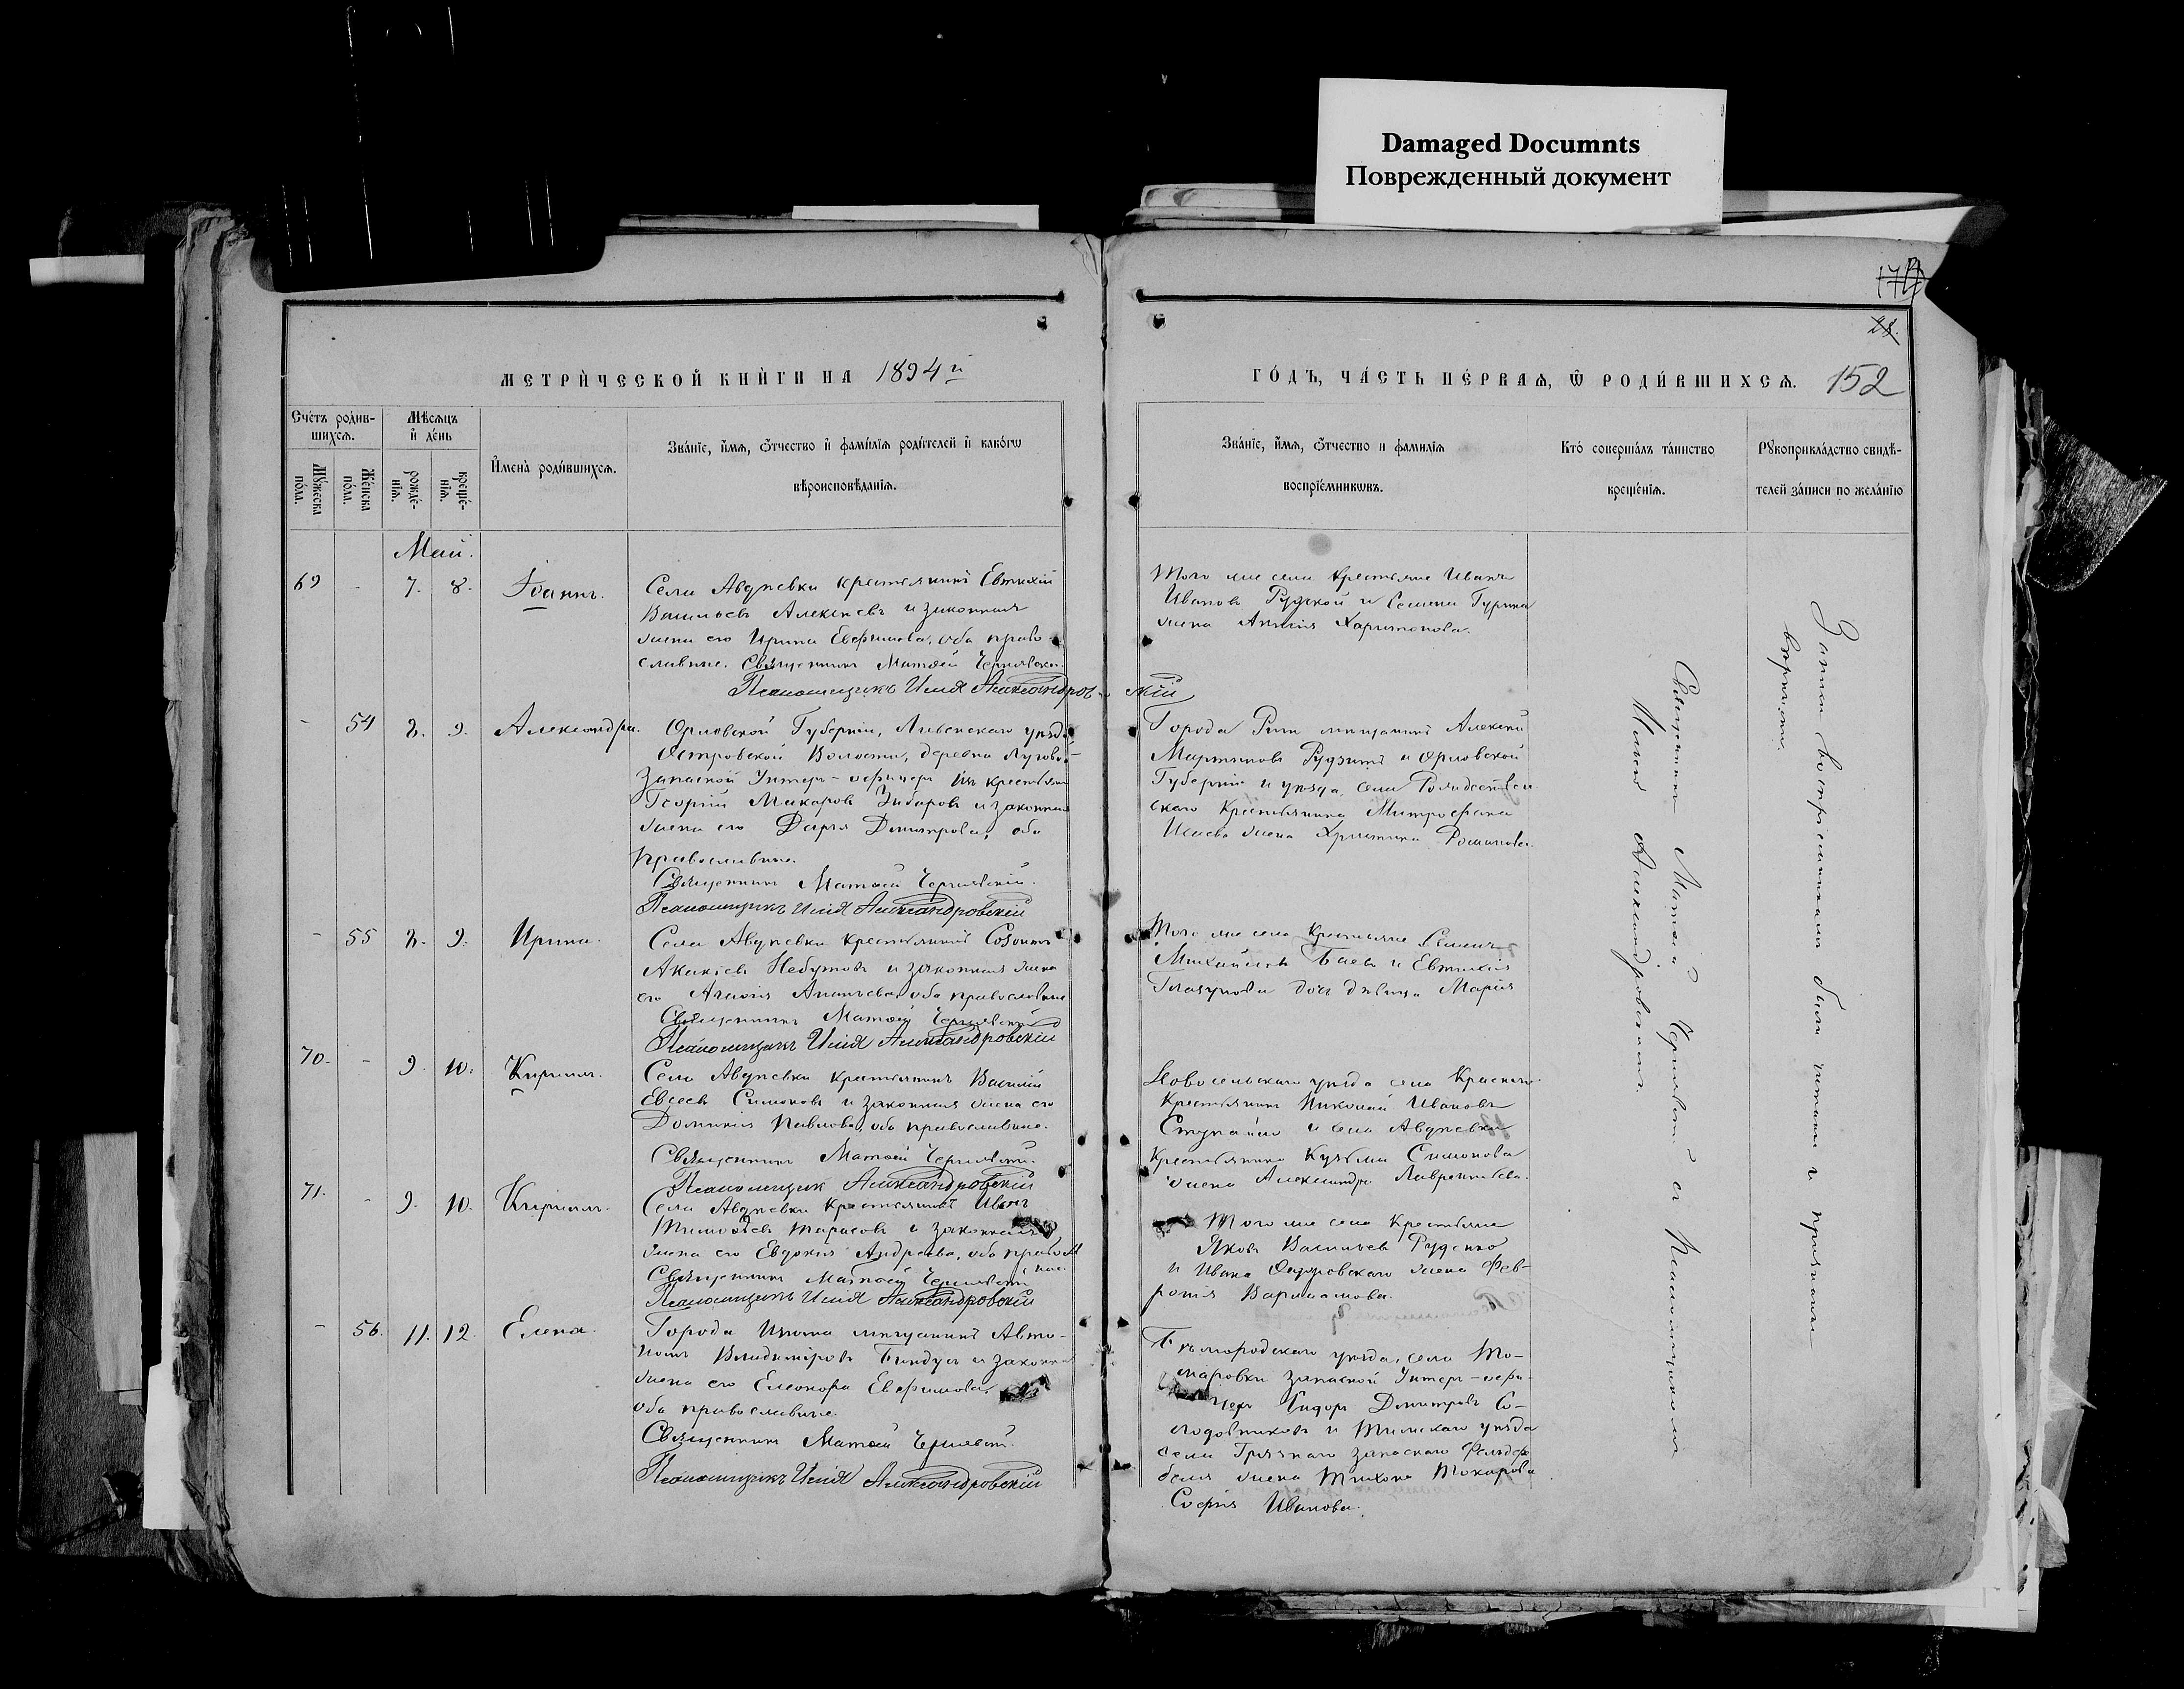 Damaged Documnts
Поврежденный документ
28.
МЕТРИЧЕСКОЙ КНИГИ НА 1894й
ГОДЪ, ЧАСТЬ ПЕРВАЯ, Ѡ РОДИВШИХСЯ. 152
Счетъ родив-
шихся.
Мужеска
пола.
Женска
пола.
Мѣсяцъ
и день
рожде-
нія.
креще-
нія.
Имена родившихся.
Званіе, имя, отчество и фамилія родителей и какогѡ
вѣроисповѣданія.
Званіе, имя, отчество и фамилія
воспріемникѡвъ.
Кто совершалъ таинство
крещенія.
Рукоприкладство свидѣ-
телей записи по желанію
Май.
69 - 7. 8. Іоаннъ.
Села Авдѣевки крестьянинъ Евтихій
Васильевъ Алексѣевъ и законная
жена его Ирина Евфимова, оба право
славные. Священникъ Матѳей Чернявскій.
Псаломщикъ Илія Александров-скій
Того же села крестьяне Иванъ
Ивановъ Рудской и Семена Гурина
жена Харитонова.
- 54 8. 9. Александра.
Орловской Губерніи, Ливенскаго уѣзда
Островской Волости, деревни Луговой
Запасной Унтеръ-офицеръ изъ крестьянъ
Георгій Макаровъ Зибаровъ и законная
жена его Дарья Димитрова, оба
православные.
Священникъ Матѳей Чернявскій.
Псаломщикъ Илія Александровскій
Города Риги мѣщанинъ Алексѣй
Мартыновъ Рудзитъ и Орловской
Губерніи и уѣзда, села Рождествен
скаго крестьянина Митрофана
Исаева жена Христина Романова.
- 55 8. 9. Ирина.
Села Авдѣевки крестьянинъ Созонтъ
Акакіевъ и законная жена
его Ананьева, оба православные
Священникъ Матѳей Чернявскій
Псаломщикъ Илія Александровскій
Того же села крестьяне Семенъ
Михайловъ Баевъ и Евтихія
Глазунова дочь дѣвица Марія
70. - 9. 10. Кириллъ.
Села Авдѣевки крестьянинъ Василій
Евсеевъ Симоновъ и законная жена его
Домникія Павлова, оба православные.
Священникъ Матѳей Чернявскій.
Псаломщикъ Александровскій
Новосельскаго уѣзда села Краснаго
крестьянинъ Николай Ивановъ
и села Авдѣевки
крестьянина Кузьмы Симонова
жена Александра Лаврентьева.
71. - 9. 10. Кириллъ.
Села Авдѣевки крестьянинъ Иванъ
Тимоѳеевъ Тарасовъ и законная
жена его Евдокія Андреева, оба правосл
Священникъ Матѳей Чернявскій ные.
Псаломщикъ Илія Александровскій
Того же села крестьяне
Яковъ Васильевъ Руденко
и Ивана жена Фев-
ронія Варламова.
- 56. 11. 12. Елена.
Города Изюма мѣщанинъ Авто-
номъ Владиміровъ и законная
жена его Елеонора Евфимова,
оба православные.
Священникъ Матѳей Чернявскій.
Псаломщикъ Илія Александровскій
Бѣлгородскаго уѣзда, села То-
маровки запасной Унтеръ-офи-
церъ Сидоръ Димитровъ Со-
лодовниковъ и Тимскаго уѣзда
села Грязнаго запаснаго Фельдфе
беля жена Тихона Токарева
Софія Иванова.
Священникъ Матѳей Чернявскій съ псаломщикомъ
Иліей Александровскимъ.
Запись воспріемниками была читана и признана
вѣрною.